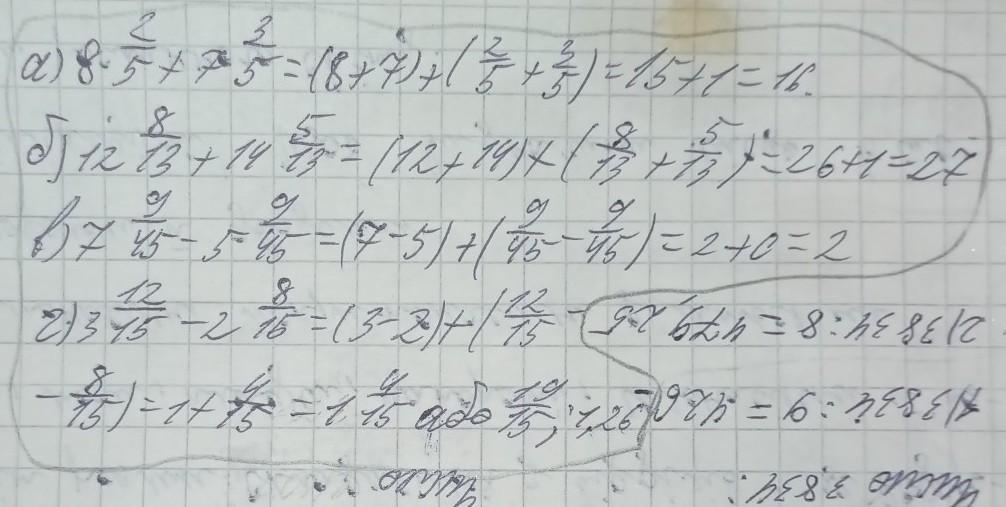 а) 8 2/5 + 7 3/5 = (8+7)+(2/5 + 3/5) = 15+1 = 16.
б) 12 8/13 + 14 5/13 = (12+14)+(8/13 + 5/13) = 26+1 = 27
в) 7 9/45 - 5 9/45 = (7-5)+(9/45 - 9/45) = 2+0 = 2
г) 3 12/15 - 2 8/15 = (3-2)+(12/15 -
- 8/15) = 1+ 4/15 = 1 4/15 або 19/15; 1,26
Число 3834:
1) 3834 : 9 = 426
2) 3834 : 8 = 479,25
Число